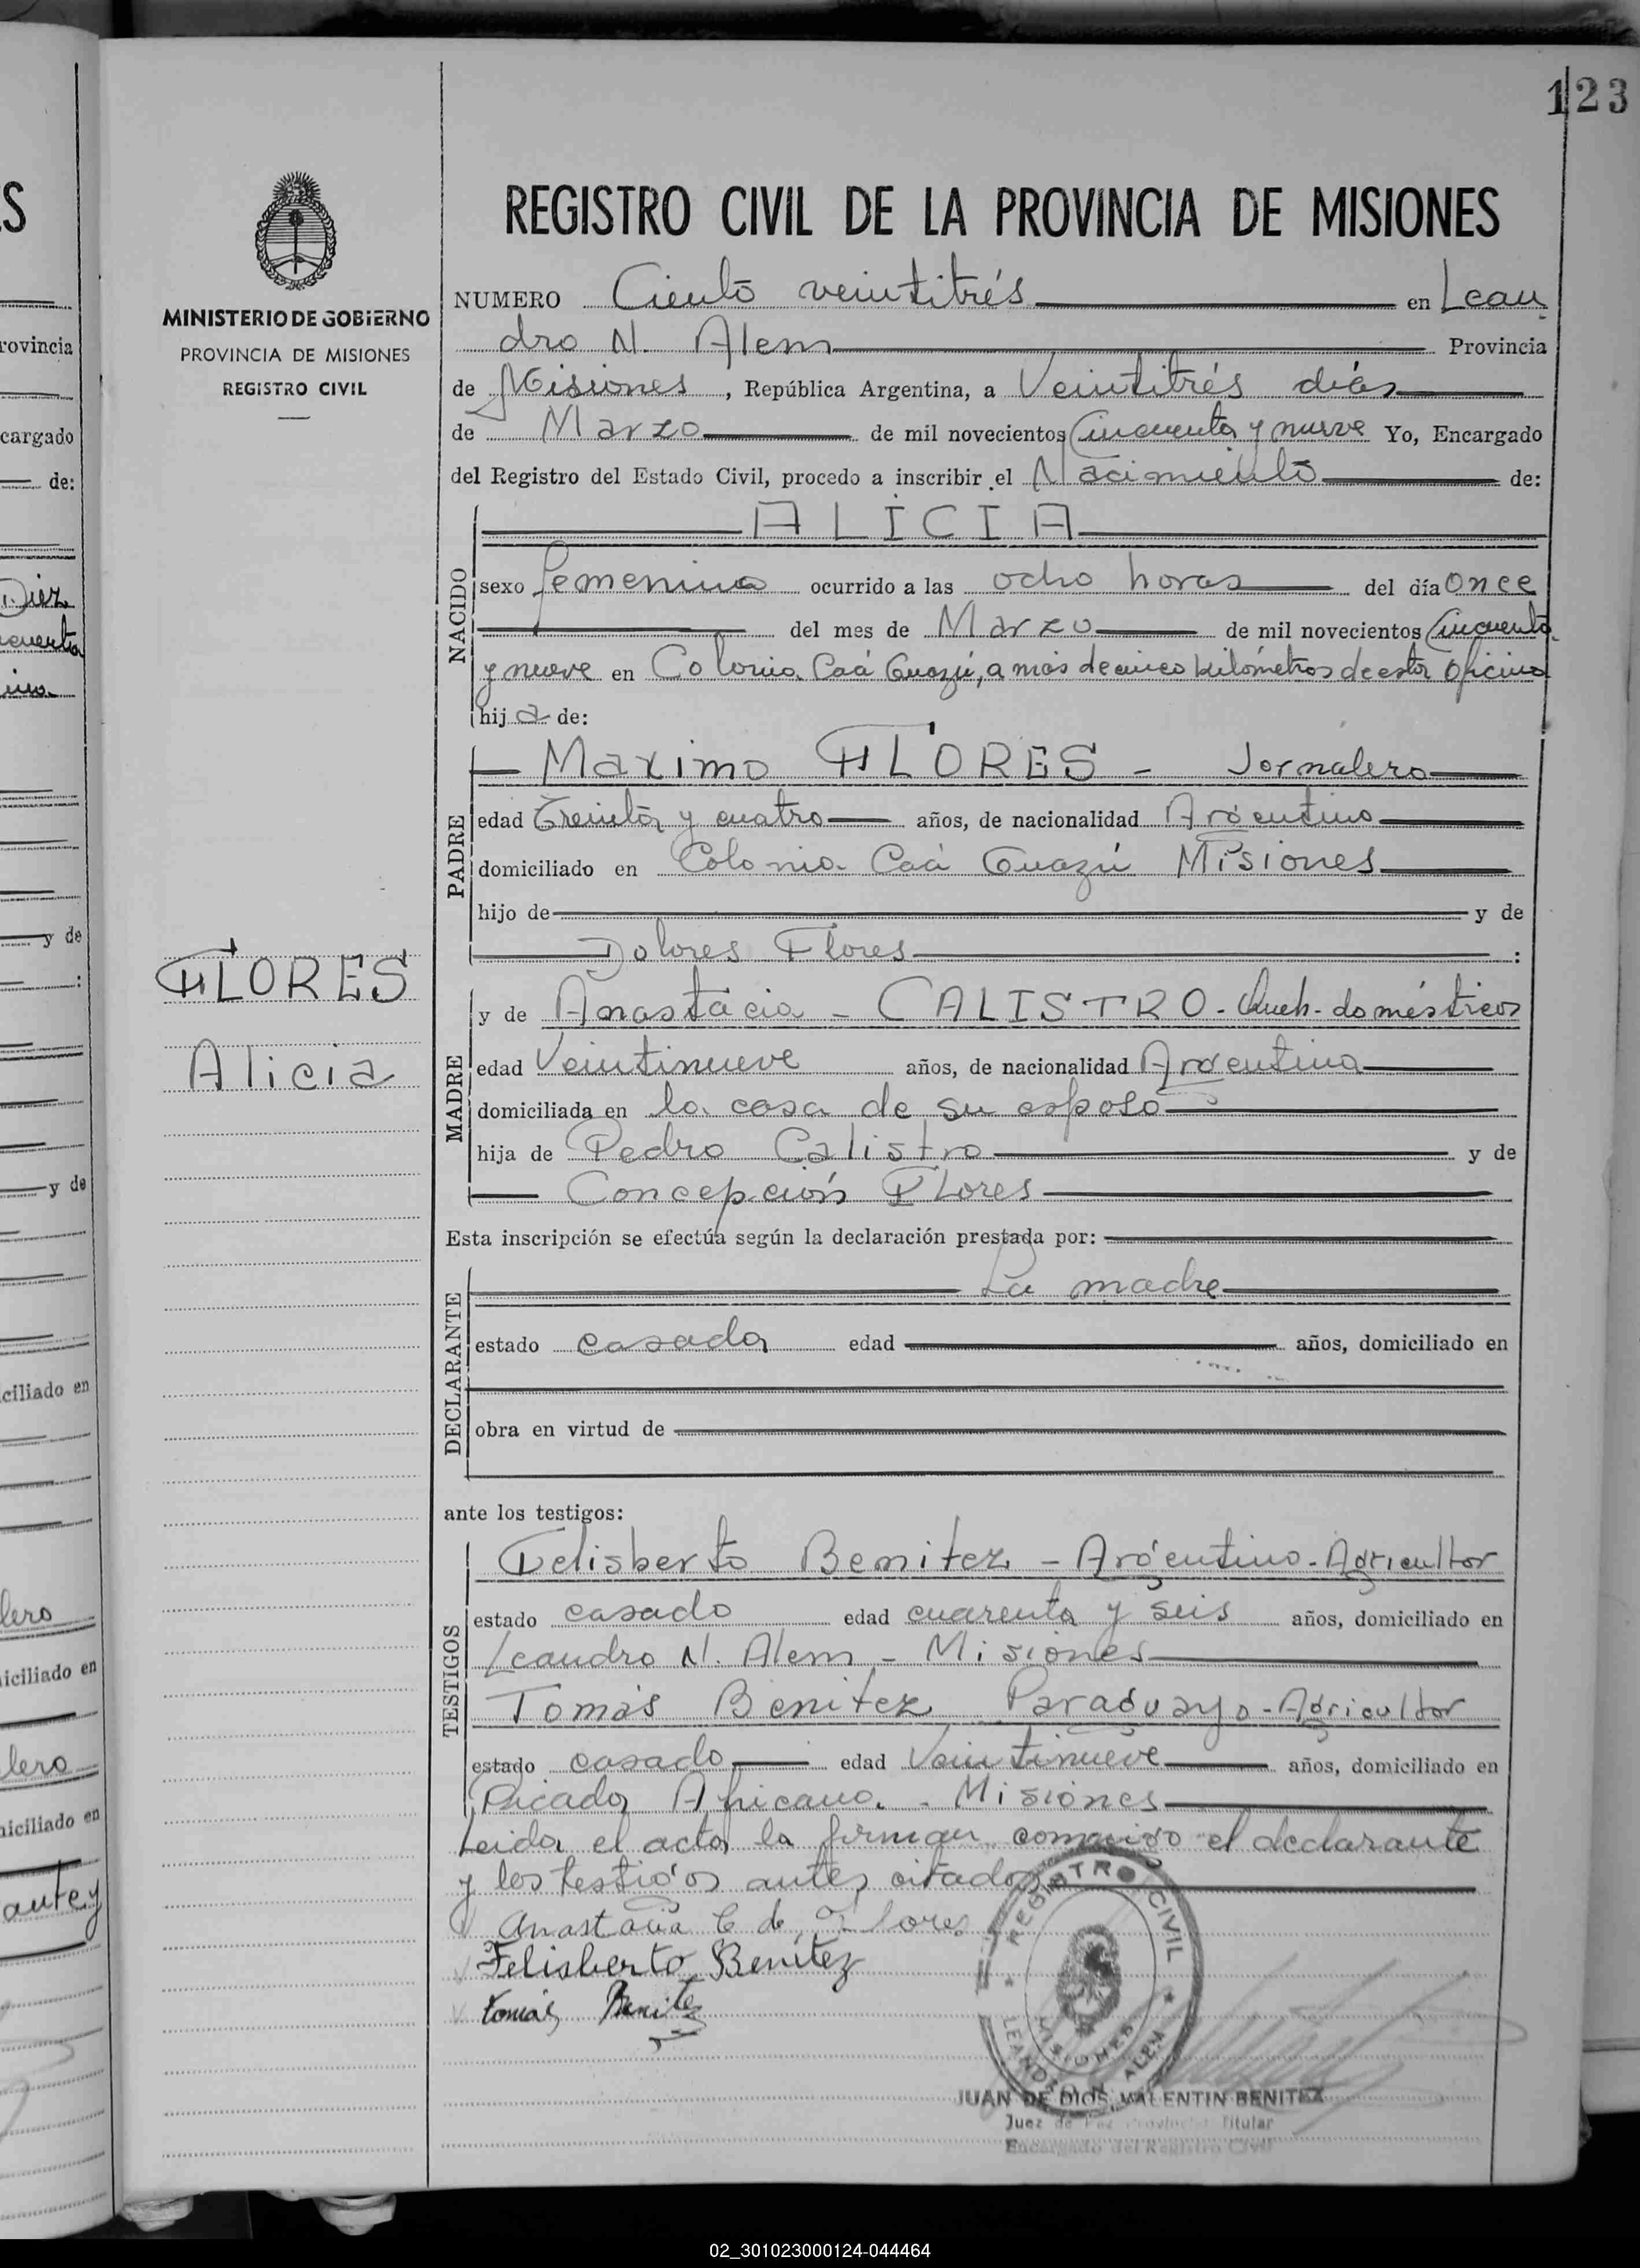 123
MINISTERIO DE GOBIERNO
PROVINCIA DE MISIONES
REGISTRO CIVIL
FLORES
Alicia
REGISTRO CIVIL DE LA PROVINCIA DE MISIONES
NUMERO Ciento veintitrés en Lean
dro N. Alem Provincia
de Misiones, República Argentina, a Veintitrés días
de Marzo de mil novecientos Cincuenta y nueve Yo, Encargado
del Registro del Estado Civil, procedo a inscribir el Nacimiento de:
NACIDO
ALICIA
sexo femenino ocurrido a las ocho horas del día once
del mes de Marzo de mil novecientos Cincuenta
y nueve en Colonia Caá Guazú, a más de cinco kilómetros de esta Oficina
hija de:
PADRE
Maximo FLORES - Jornalero
edad Treinta y cuatro años, de nacionalidad Argentino
domiciliado en Colonia Caá Guazú Misiones
hijo de y de
Dolores Flores :
MADRE
y de Anastacia - CALISTRO - Queh. domésticos
edad Veintinueve años, de nacionalidad Argentina
domiciliada en la casa de su esposo
hija de Pedro Calistro y de
Concepción Flores
Esta inscripción se efectúa según la declaración prestada por:
DECLARANTE
La madre
estado casada edad años, domiciliado en
obra en virtud de
ante los testigos:
TESTIGOS
Felisberto Benitez - Argentino - Agricultor
estado casado edad cuarenta y seis años, domiciliado en
Leandro N. Alem - Misiones
Tomás Benitez Paraguayo - Agricultor
estado casado edad Veintinueve años, domiciliado en
Picada Africana - Misiones
Leida el acta la firman conmigo el declarante
y los testigos antes citados
Anastacia C de Flores
Felisberto Benitez
tomás Benitez
REGISTRO CIVIL
MISIONES
LEANDRO N. ALEM
JUAN DE DIOS VALENTIN BENITEZ
Juez de Paz Provincial Titular
Encargado del Registro Civil
02_301023000124-044464